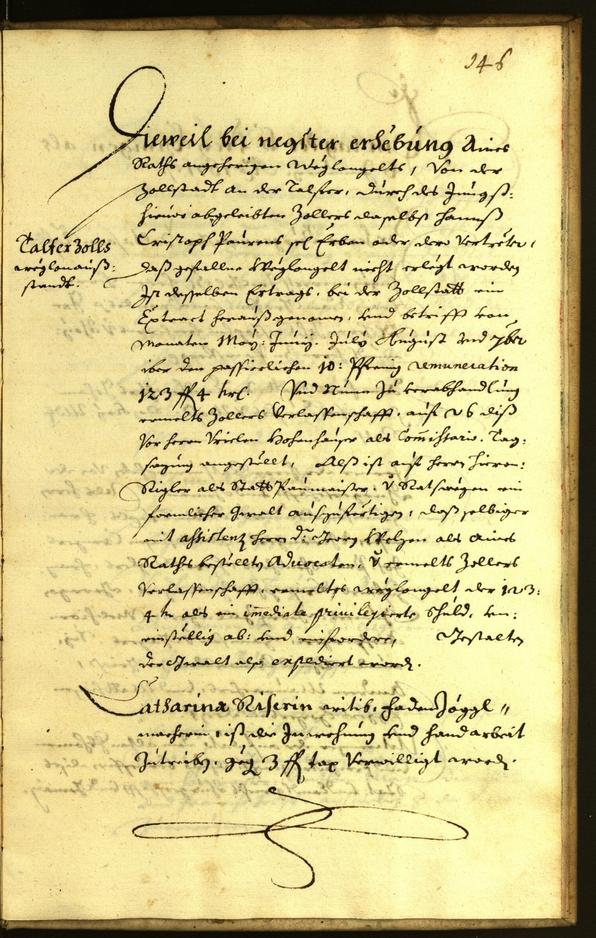 146
Dieweil bei negster erhebung Aines
Raths angehörigen Weglongelts, Von der
Zollstadt an der Talfer, durch des Jüngst:
hieuor abgeleibten Zollers daselbst Hannß
Cristoph Paurens sel. Erben oder dero Vertreter,
daß gefallne Weglongelt nicht erlegt worden
Ist desselben Ertrags, bei der Zollstatt ein
Extract herauß genomen, vnd betrifft von
Monaten May: Junij. July August vnd 7ber
über den passierlichen 10: Pfening remuneration
123 ff 4 krl. Vnd Nune zu verabhandlung
ermelts Zollers Verlassenschafft, auf 26 diß
Vor herrn Hohenhauser als Comissario. Tag-
sazung angestellt, Alß ist auf herrn Hieron:
Rigler als Statt Paumaister, Raths wegen ein
formlicher Gwalt außzufertigen, daß selbiger
mit assistenz herrn D: Georg Welzen als Aines
Raths bestellten Aduocaten, ermelts Zollers
Verlassenschafft, ermeltes weglongelt der 123:
4 kr als ein imediate priuilegierte Schuld, un-
einstellig ab: vnd einfordere, Gestalten
der Gwalt also expediert worden.
Talfer Zolls
weglonauß:
standt.
Catharina Riserin Jöggl
macherin, ist die Inwohnung vnd handarbeit
Zutreiben, geg 3 ff tax Verwilligt worden.